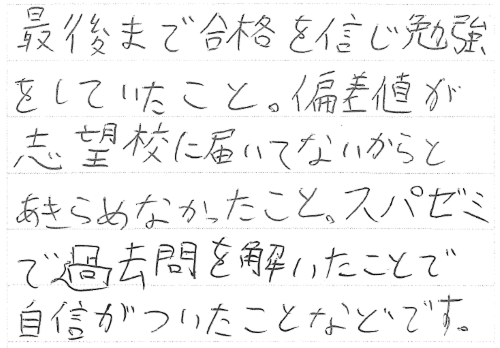 最後まで合格を信じ勉強
をしていたこと。偏差値が
志望校に届いてないからと
あきらめなかったこと。スパゼミ
で過去問を解いたことで
自信がついたことなどです。